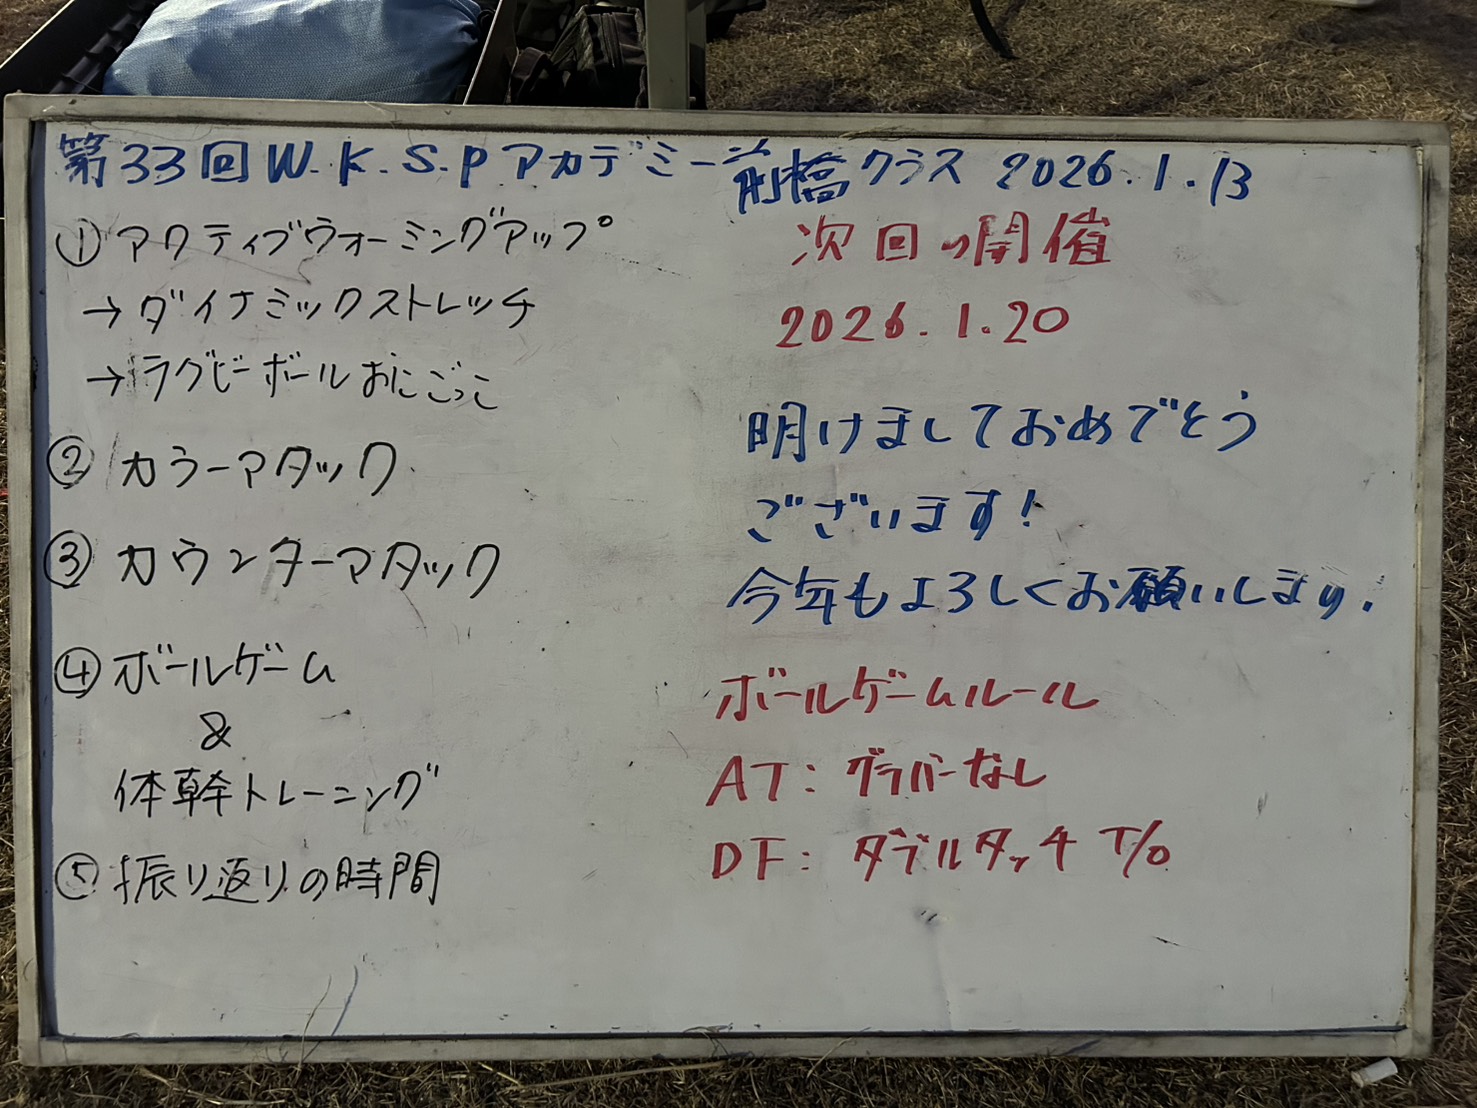 第33回W.K.S.Pアカデミー前橋クラス 2026.1.13
①アクティブウォーミングアップ
→ダイナミックストレッチ
→ラグビーボールおにごっこ
②カラーアタック
③カウンターアタック
④ボールゲーム
&
体幹トレーニング
⑤振り返りの時間
次回の開催
2026.1.20
明けましておめでとう
ございます!
今年もよろしくお願いします.
ボールゲームルール
AT:グラバーなし
DF:ダブルタッチ T/O